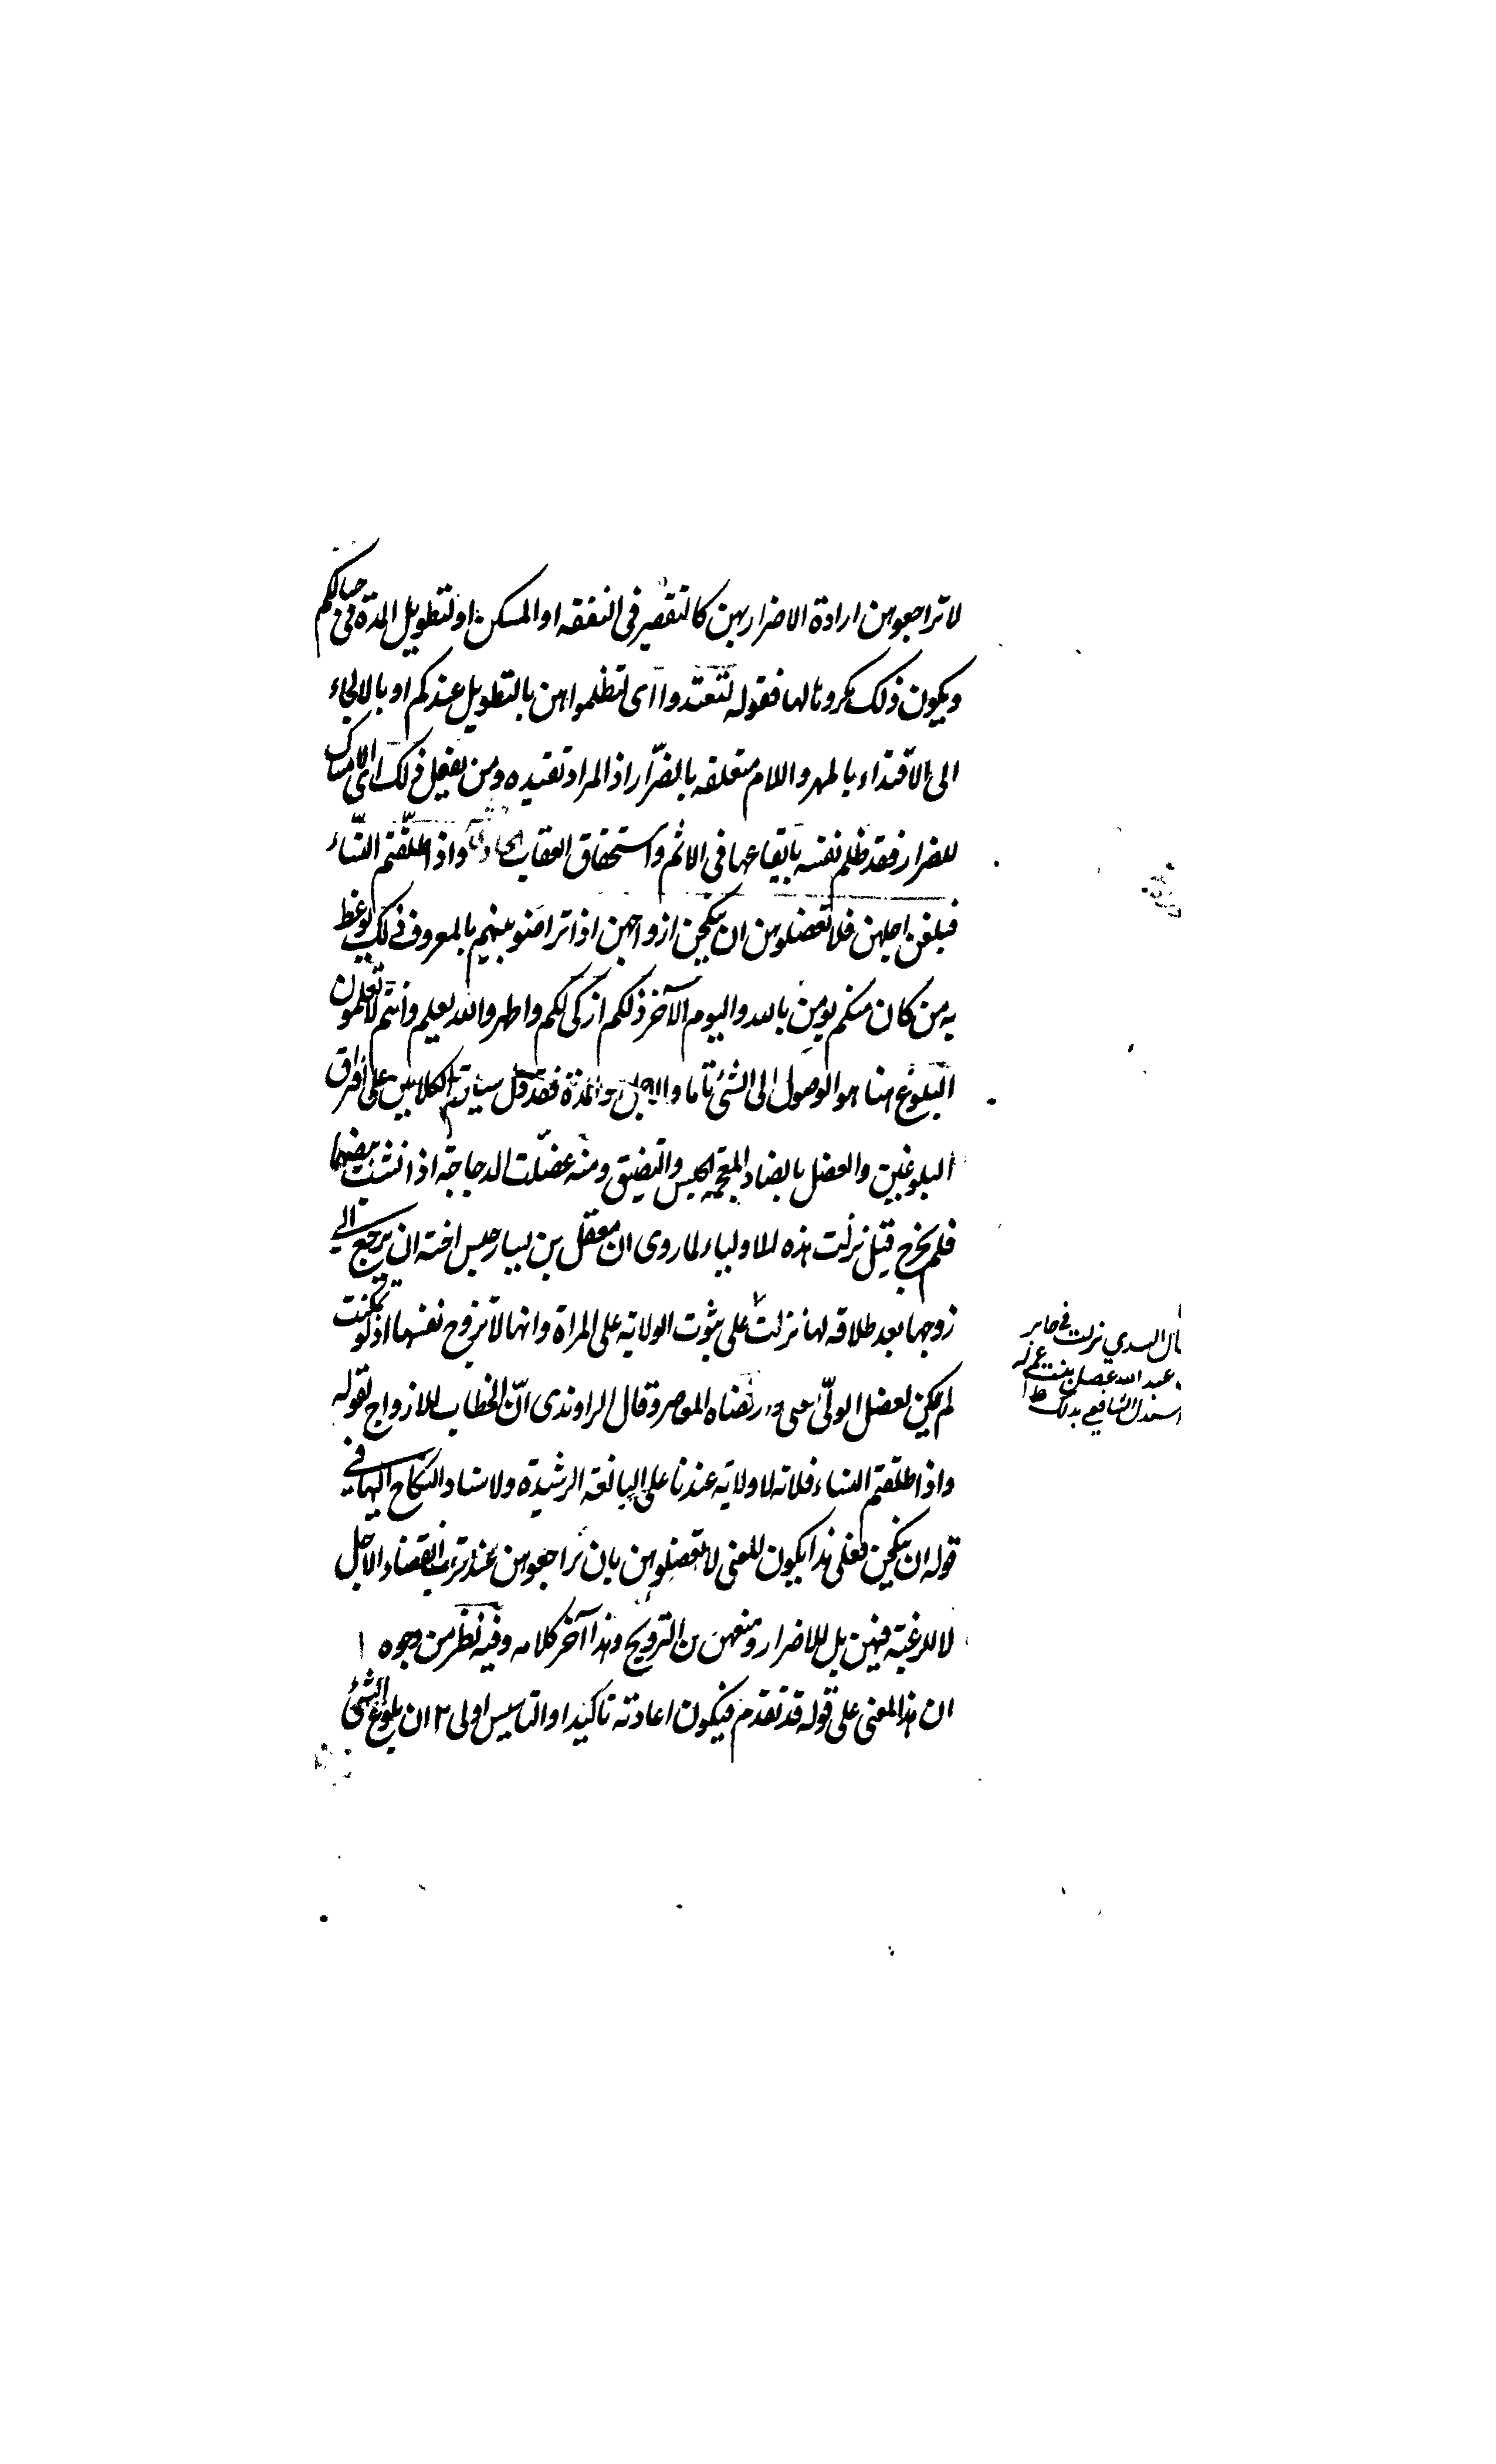 لا تراجعوهن ارادة الاضرار بهن كالتقصير فى النفقه او المسكن او لتطويل المدة فى حبالكم
ويكون ذلك مكروها لها فقوله لتعتدوا اى لتظلموا هن بالتطويل عندكم او بالالجاء
الى الاقتداء بالمهر واللام متعلقه بالضرار اذ المراد تقييده ومن يفعل ذلك اى الامساك
للضرار فقد ظلم نفسه بايقاعها فى الاثم واستحقاق العقاب واذا طلقتم النساء
فبلغن اجلهن فلا تعضلوهن ان ينكحن ازواجهن اذا تراضو بينهم بالمعروف ذلك يوعظ
به من كان منكم يومن بالله واليوم الآخر ذلكم ازكى لكم واطهر والله يعلم وانتم لا تعلمون
البلوغ هنا هو الوصول الى الشئ تاما والاجل والمدة فقد دل سياق الكلامين على افتراق
البلوغين والعضل بالضاد المعجمة الحبس والتضيق ومنه عضلت الدجاجة اذا نشبت بيضها
فلم يخرج قيل نزلت هذه للاولياء لما روى ان معقل بن يسار حبس اخته ان يرجع الى
زوجها بعد طلاقه لها نزلت على ثبوت الولاية على المراة وانها لا تزوج نفسها اذ لو تمكنت
لم يكن لعضل الولى معنى وارتضاه المعاصر وقال الراوندى انّ الخطاب للازواج لقوله
واذا طلقتم النساء فلانه لا ولاية عندنا على البالغة الرشيدة ولاسناد النكاح اليها فى
قوله ان ينكحن فعلى هذا يكون للمعنى لا تعضلوهن بان تراجعوهن عند قرب انقضاء الاجل
لا للرغبة فيهن بل للاضرار ومنعهن من التزويج وهذا آخر كلامه وفيه نظر من وجوه ١
ان هذا المعنى على قوله قد تقدم فيكون اعادته تاكيدا والتاسيس اولى ٢ ان بلوغ الشئ
قال السدي نزلت فى جابر
بن عبد الله عضل بنت عم له
استدل الشافعي بذلك